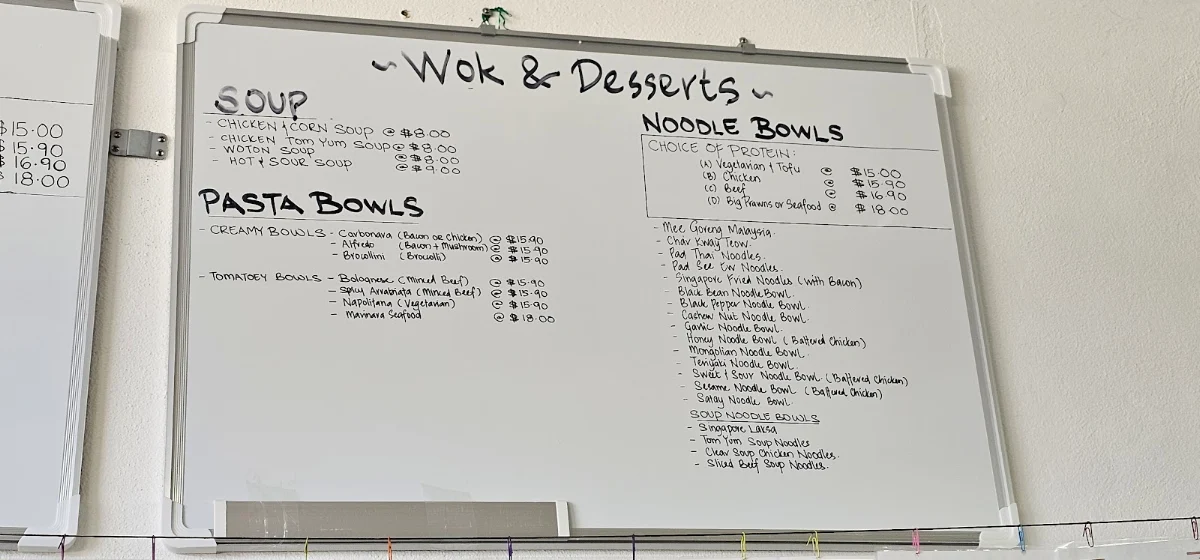 $15.00
$15.90
$16.90
$18.00
~Wok & Desserts~
SOUP
- CHICKEN & CORN SOUP @ $8.00
- CHICKEN Tom Yum SOUP @ $8.00
- WOTON SOUP @ $8.00
- HOT & SOUR SOUP @ $9.00
PASTA BOWLS
- CREAMY BOWLS - Carbonara (Bacon or Chicken) @ $15.90
- Alfredo (Bacon + Mushroom) @ $15.90
- Brocollini (Brocolli) @ $15.90
- TOMATOEY BOWLS - Bolognese (Minced Beef) @ $15.90
- Spicy Arrabiata (Minced Beef) @ $15.90
- Napolitana (Vegetarian) @ $15.90
- Marinara Seafood @ $18.00
NOODLE BOWLS
CHOICE OF PROTEIN:
(A) Vegetarian & Tofu @ $15.00
(B) Chicken @ $15.90
(C) Beef @ $16.90
(D) Big Prawns or Seafood @ $18.00
- Mee Goreng Malaysia.
- Char Kway Teow.
- Pad Thai Noodles.
- Pad See Ew Noodles.
- Singapore Fried Noodles (with Bacon)
- Black Bean Noodle Bowl.
- Black Pepper Noodle Bowl.
- Cashew Nut Noodle Bowl.
- Garlic Noodle Bowl.
- Honey Noodle Bowl (Battered Chicken)
- Mongolian Noodle Bowl.
- Teriyaki Noodle Bowl.
- Sweet & Sour Noodle Bowl. (Battered Chicken)
- Sesame Noodle Bowl (Battered Chicken)
- Satay Noodle Bowl.
SOUP NOODLE BOWLS
- Singapore Laksa
- Tom Yum Soup Noodles
- Clear Soup Chicken Noodles.
- Sliced Beef Soup Noodles.